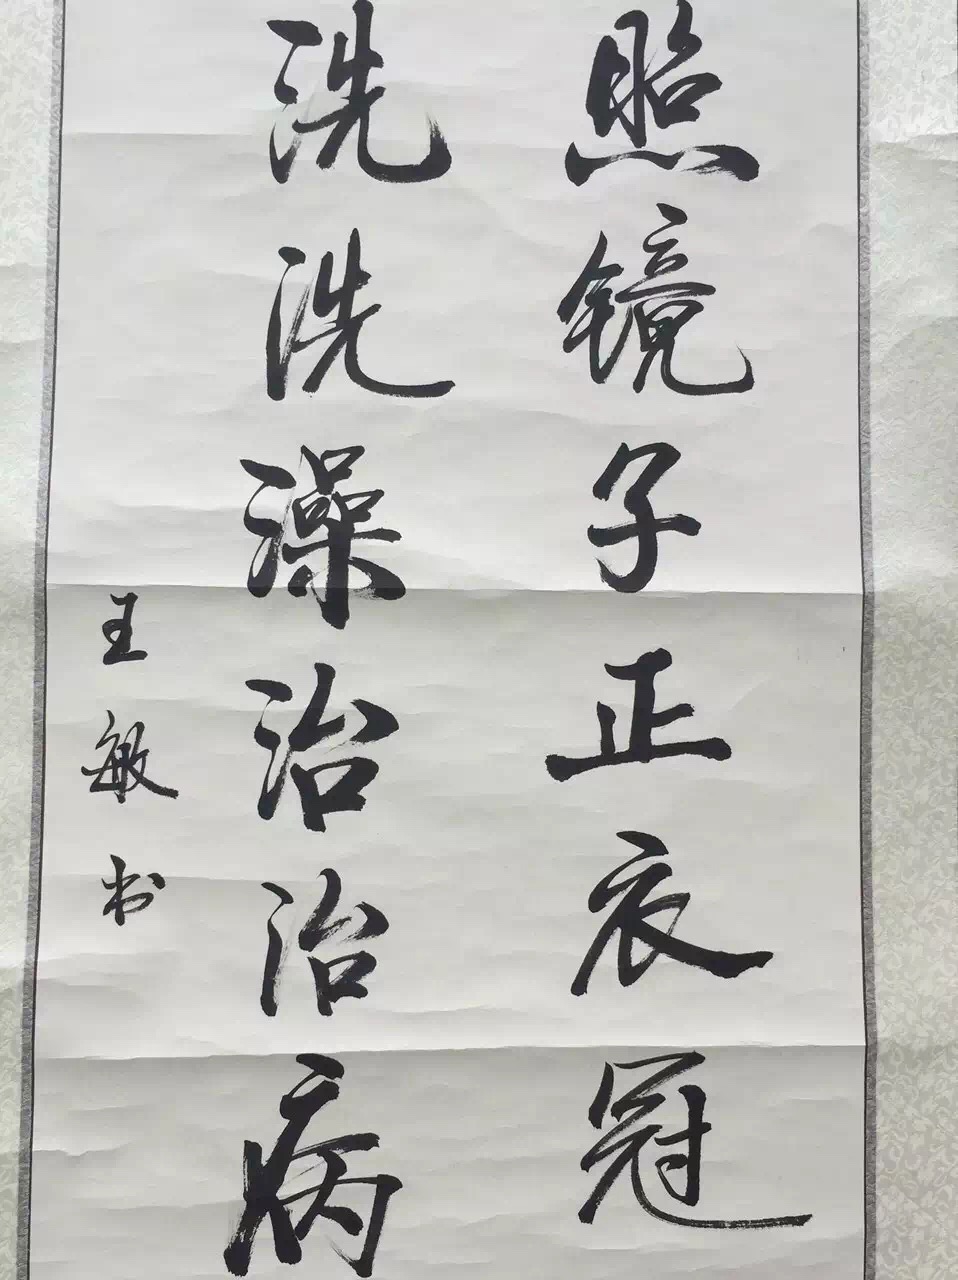 照镜子正衣冠
洗洗澡治治病
王敏书